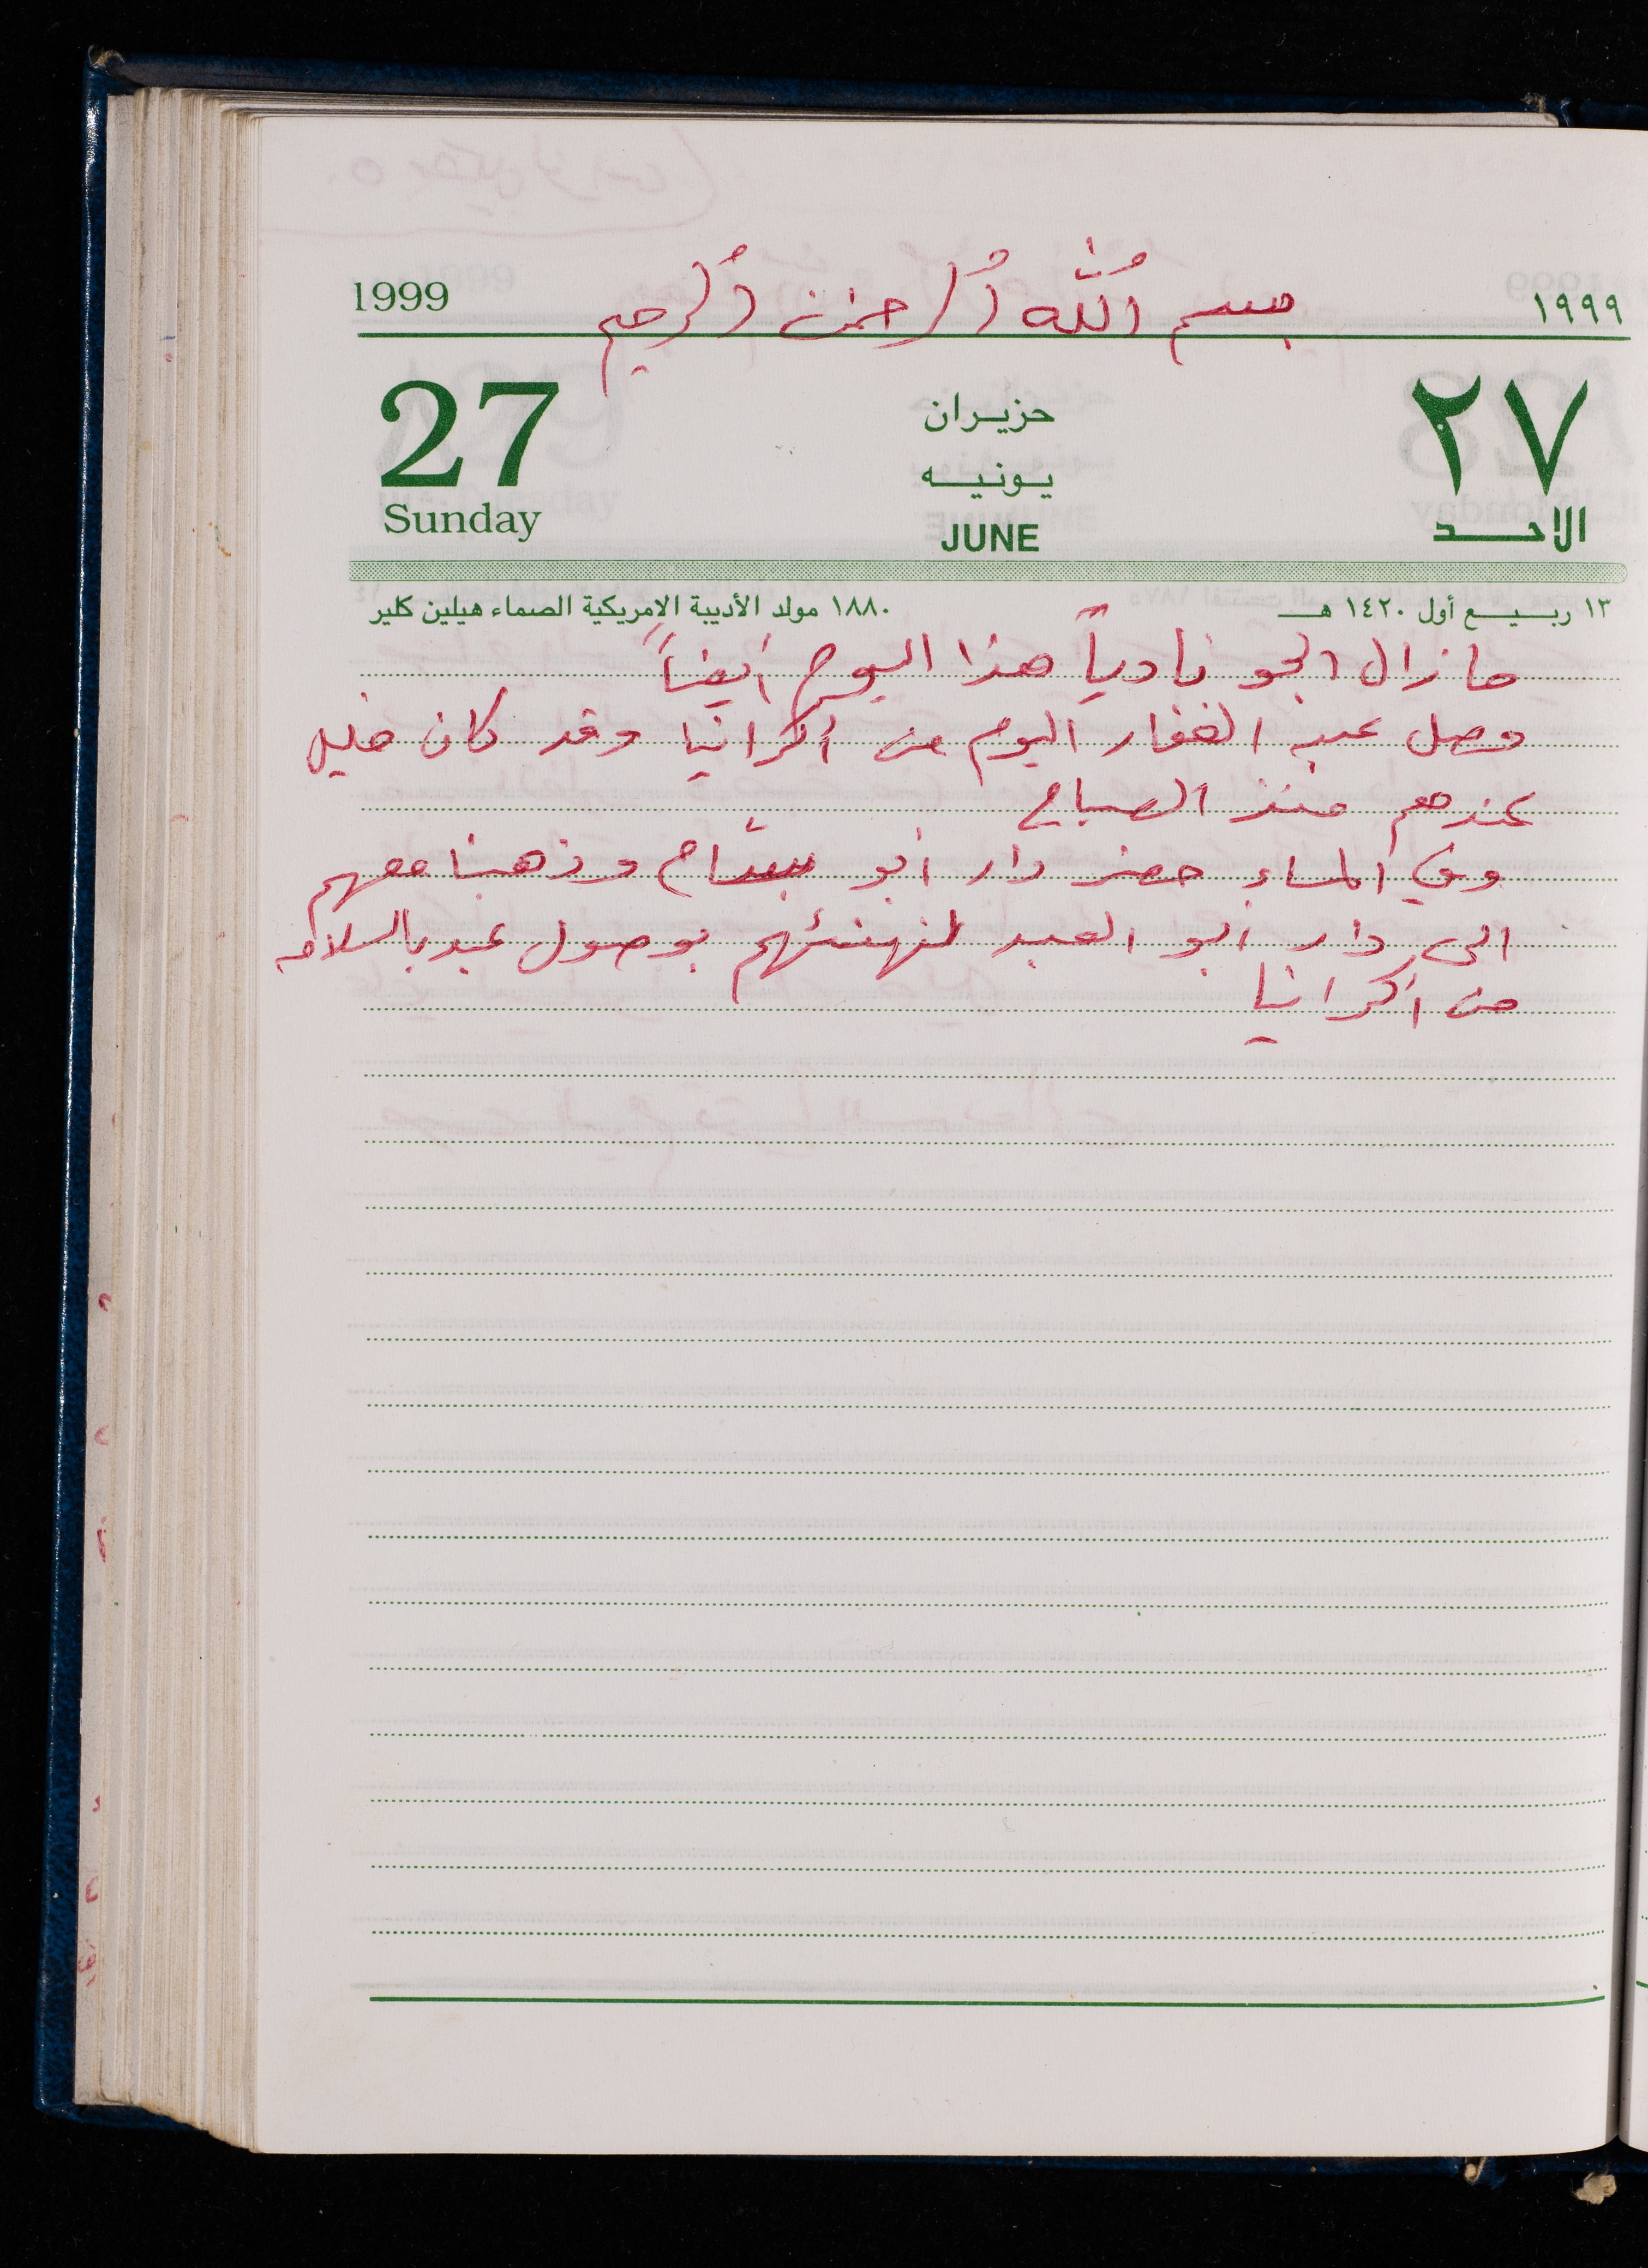 بسم الله الرحمن الرحيم
1999
١٩٩٩
27
حزيران
٢٧
يونيه
Sunday
JUNE
الاحد
١٣ ربيع أول ١٤٢٠ هـ
١٨٨٠ مولد الأديبة الامريكية الصماء هيلين كلير
ما زال الجو نادياً هذا اليوم أيضاً
وصل عبد الغفار اليوم من أكرانيا وقد كان خليل
عندهم منذ الصباح
وفي المساء حضر دار ابو بسام وذهبنا معهم
الى دار ابو العبد لنهنئهم بوصول عبد بالسلامه
من أكرانيا